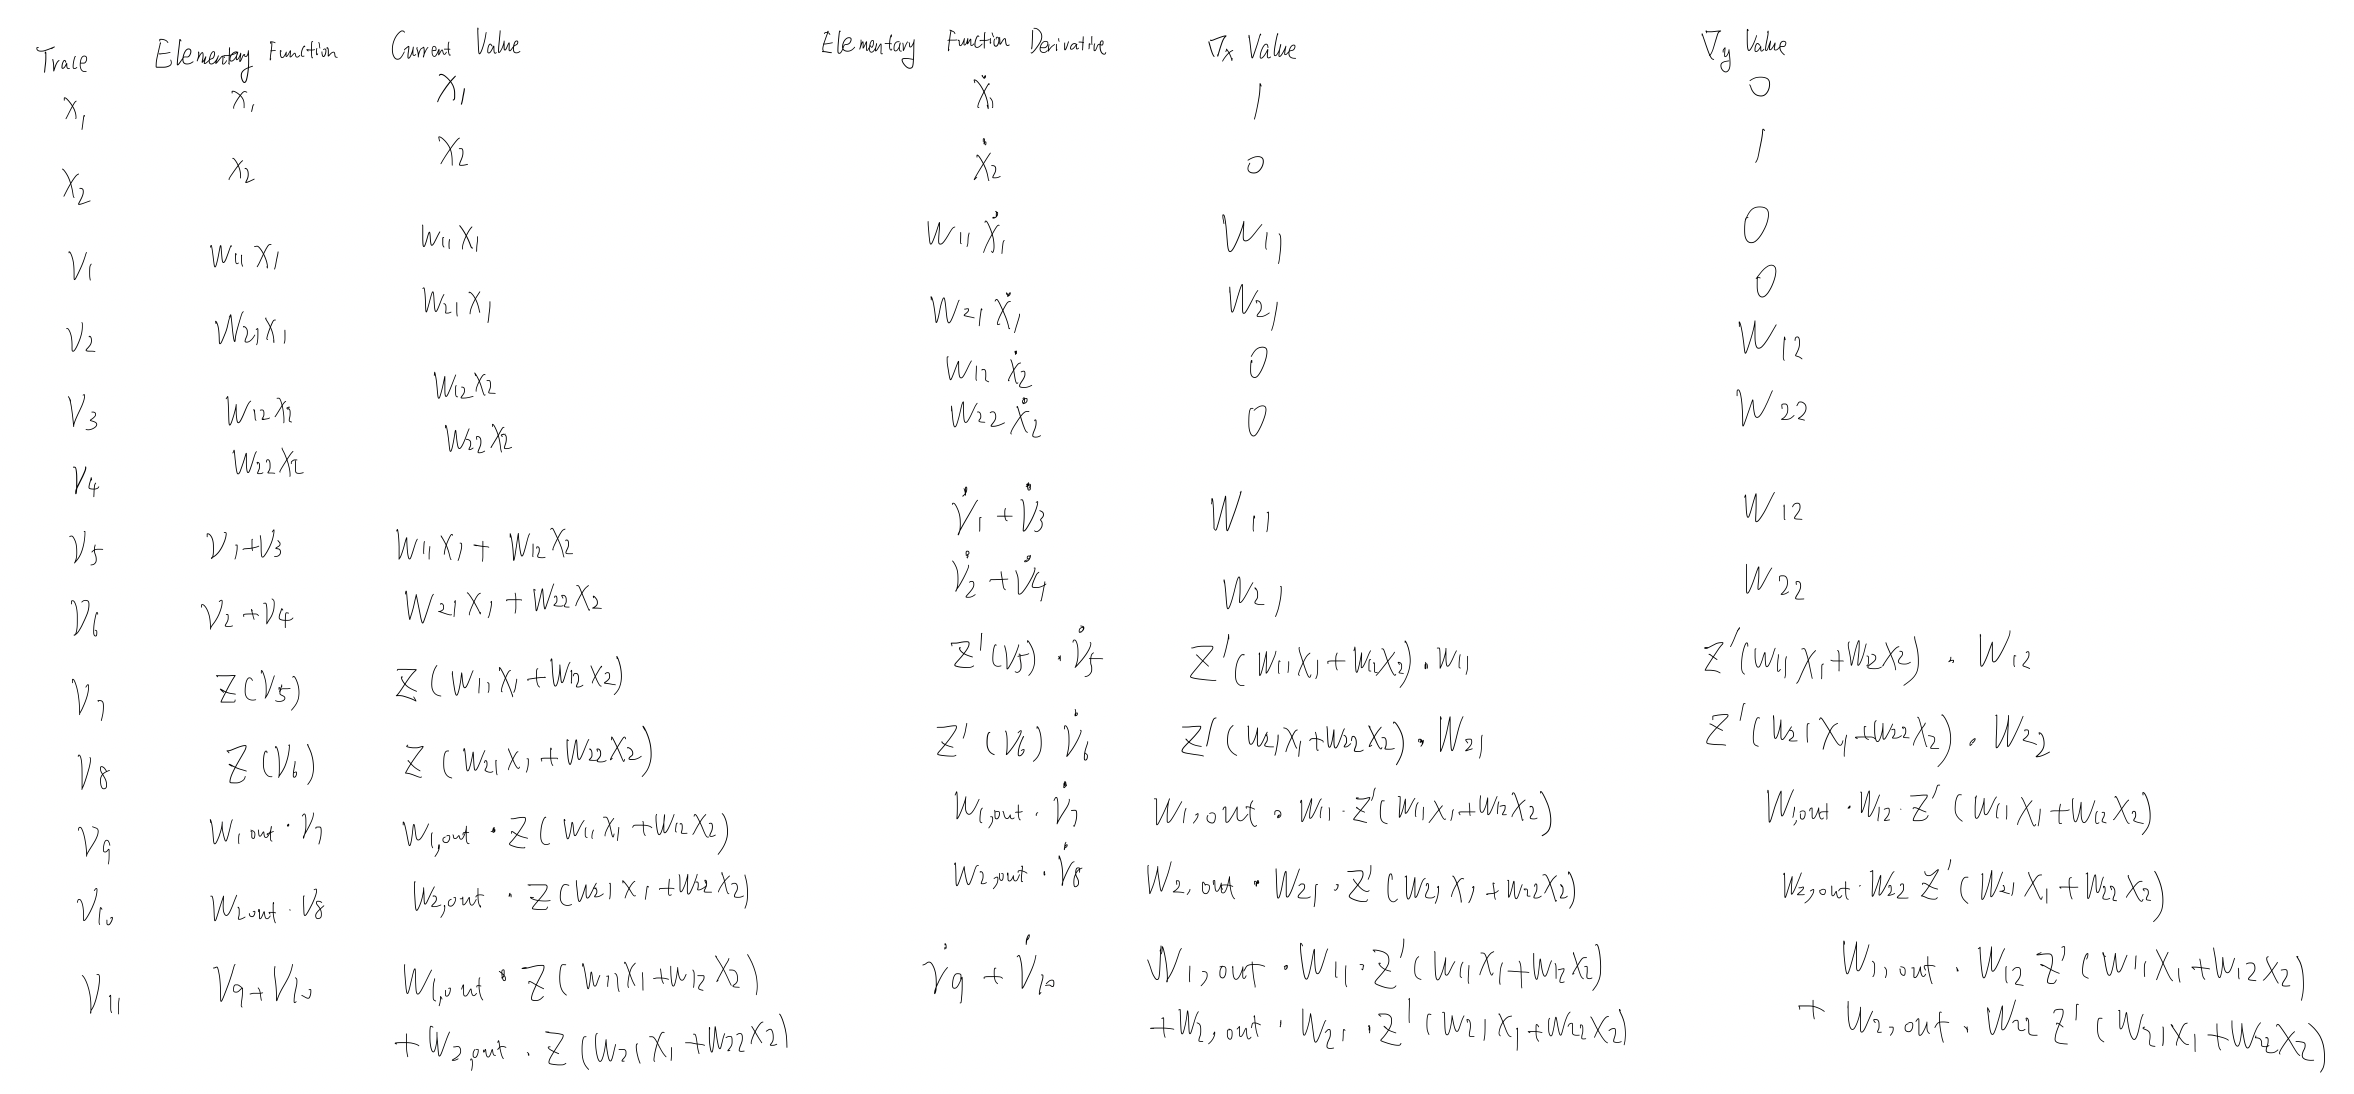 Trace Elementary Function Current Value Elementary Function Derivative ∇x Value ∇y Value
x₁ x₁ x₁ ẋ₁ 1 0
x₂ x₂ x₂ ẋ₂ 0 1
V₁ W₁₁X₁ W₁₁X₁ W₁₁Ẋ₁ W₁₁ 0
V₂ W₂₁X₁ W₂₁X₁ W₂₁Ẋ₁ W₂₁ 0
V₃ W₁₂X₂ W₁₂X₂ W₁₂Ẋ₂ 0 W₁₂
V₄ W₂₂X₂ W₂₂X₂ W₂₂Ẋ₂ 0 W₂₂
V₅ V₁+V₃ W₁₁X₁ + W₁₂X₂ V̇₁ + V̇₃ W₁₁ W₁₂
V₆ V₂+V₄ W₂₁X₁ + W₂₂X₂ V̇₂ + V̇₄ W₂₁ W₂₂
V₇ Z(V₅) Z(W₁₁X₁+W₁₂X₂) Z'(V₅)·V̇₅ Z'(W₁₁X₁+W₁₂X₂)·W₁₁ Z'(W₁₁X₁+W₁₂X₂)·W₁₂
V₈ Z(V₆) Z(W₂₁X₁+W₂₂X₂) Z'(V₆) V̇₆ Z'(W₂₁X₁+W₂₂X₂)·W₂₁ Z'(W₂₁X₁+W₂₂X₂)·W₂₂
V₉ W₁out·V₇ W₁,out·Z(W₁₁X₁+W₁₂X₂) W₁,out·V̇₇ W₁,out·W₁₁·Z'(W₁₁X₁+W₁₂X₂) W₁,out·W₁₂·Z'(W₁₁X₁+W₁₂X₂)
V₁₀ W₂out·V₈ W₂,out·Z(W₂₁X₁+W₂₂X₂) W₂,out·V̇₈ W₂,out·W₂₁·Z'(W₂₁X₁+W₂₂X₂) W₂,out·W₂₂ Z'(W₂₁X₁+W₂₂X₂)
V₁₁ V₉+V₁₀ W₁,out·Z(W₁₁X₁+W₁₂X₂) V̇₉ + V̇₁₀ W₁,out·W₁₁·Z'(W₁₁X₁+W₁₂X₂) W₁,out·W₁₂ Z'(W₁₁X₁+W₁₂X₂)
+W₂,out·Z(W₂₁X₁+W₂₂X₂) +W₂,out·W₂₁·Z'(W₂₁X₁+W₂₂X₂) + W₂,out·W₂₂ Z'(W₂₁X₁+W₂₂X₂)